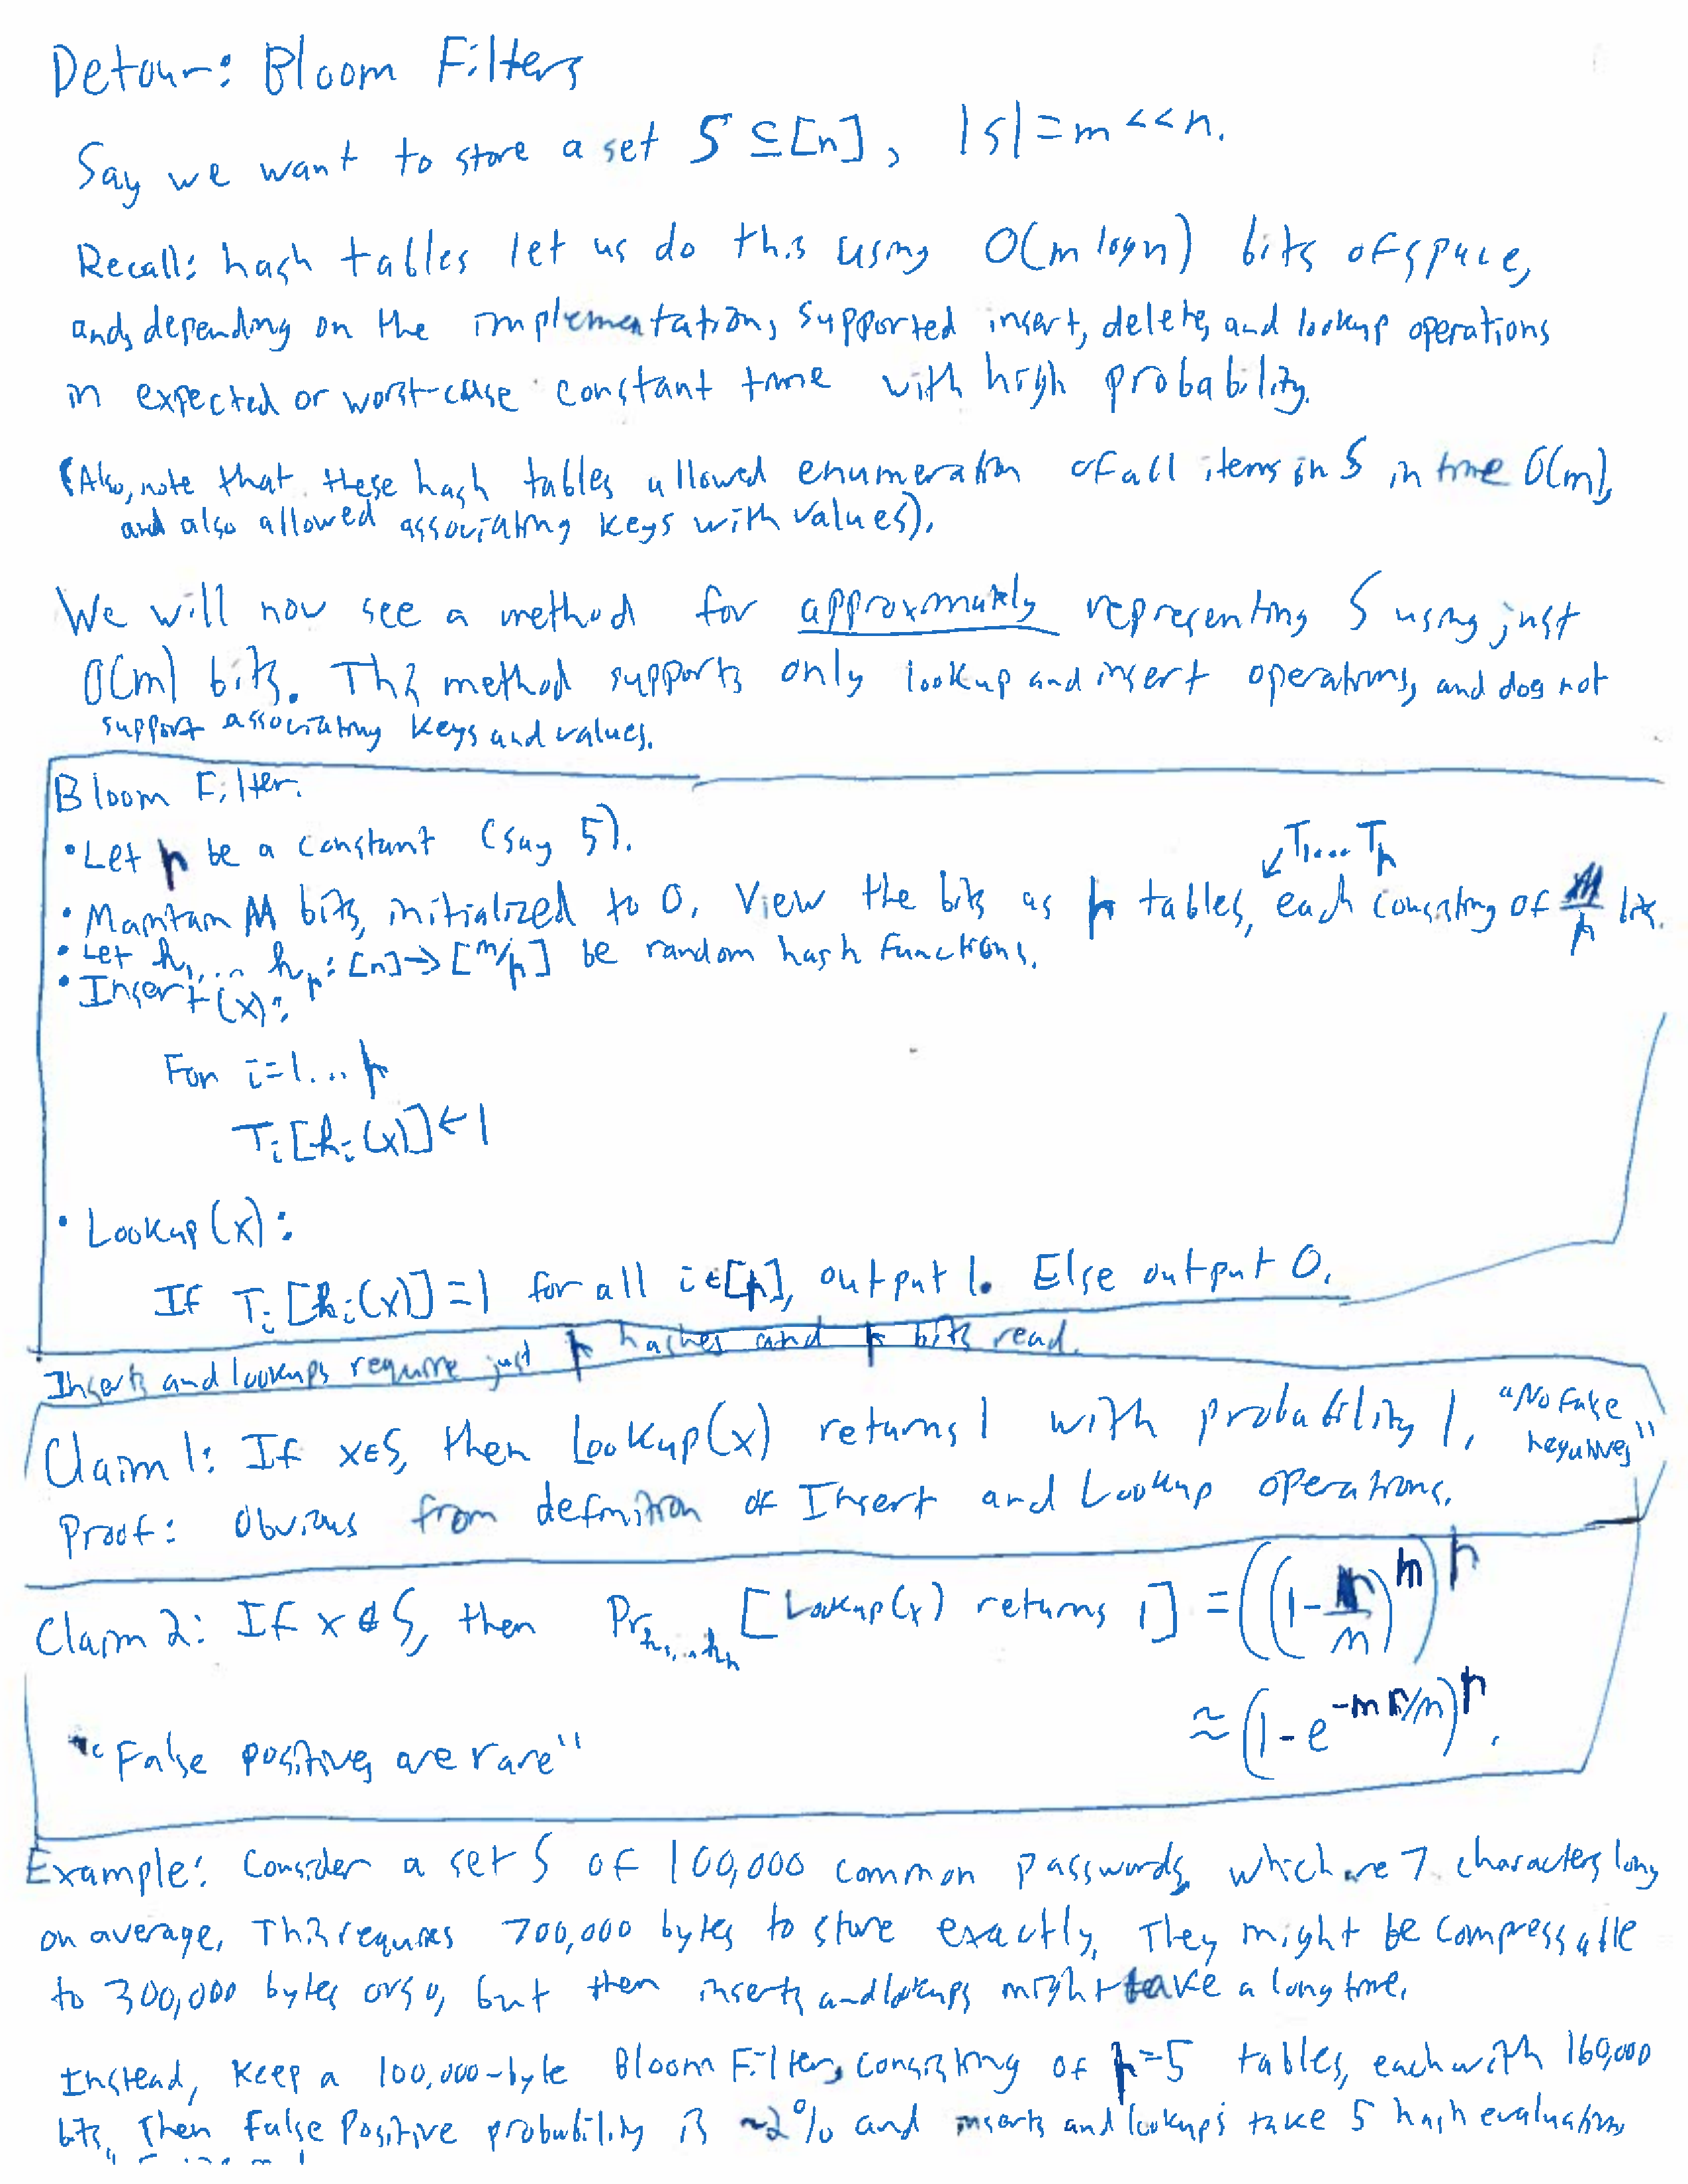 Detour: Bloom Filters
Say we want to store a set S ⊆ [n], |S| = m << n.
Recall: hash tables let us do this using O(m log n) bits of space,
and, depending on the implementation, supported insert, delete, and lookup operations
in expected or worst-case constant time with high probability.
(Also, note that these hash tables allowed enumeration of all items in S in time O(m),
and also allowed associating keys with values).
We will now see a method for approximately representing S using just
O(m) bits. This method supports only lookup and insert operations, and does not
support associating keys and values.
Bloom Filter:
• Let r be a constant (say 5).
T1... Tr
• Maintain M bits, initialized to 0. View the bits as r tables, each consisting of M/r bits.
• Let h1,... hr: [n] → [M/r] be random hash functions.
• Insert(x):
For i=1... r
Ti[hi(x)] ← 1
• Lookup(x):
If Ti[hi(x)] = 1 for all i ∈ [r], output 1. Else output 0.
Inserts and lookups require just r hashes and r bits read.
Claim 1: If x ∈ S, then Lookup(x) returns 1 with probability 1. "No false negatives"
Proof: Obvious from definition of Insert and Lookup operations.
Claim 2: If x ∉ S, then Pr h1,...hr [Lookup(x) returns 1] = ((1 - r/M)^m)^r
≈ (1 - e^(-mr/M))^r.
"False positives are rare"
Example: Consider a set S of 100,000 common passwords, which are 7 characters long
on average. This requires 700,000 bytes to store exactly. They might be compressable
to 300,000 bytes or so, but then inserts and lookups might take a long time.
Instead, keep a 100,000-byte Bloom Filter, consisting of r=5 tables, each with 160,000
bits. Then False Positive probability is ~2% and inserts and lookups take 5 hash evaluations